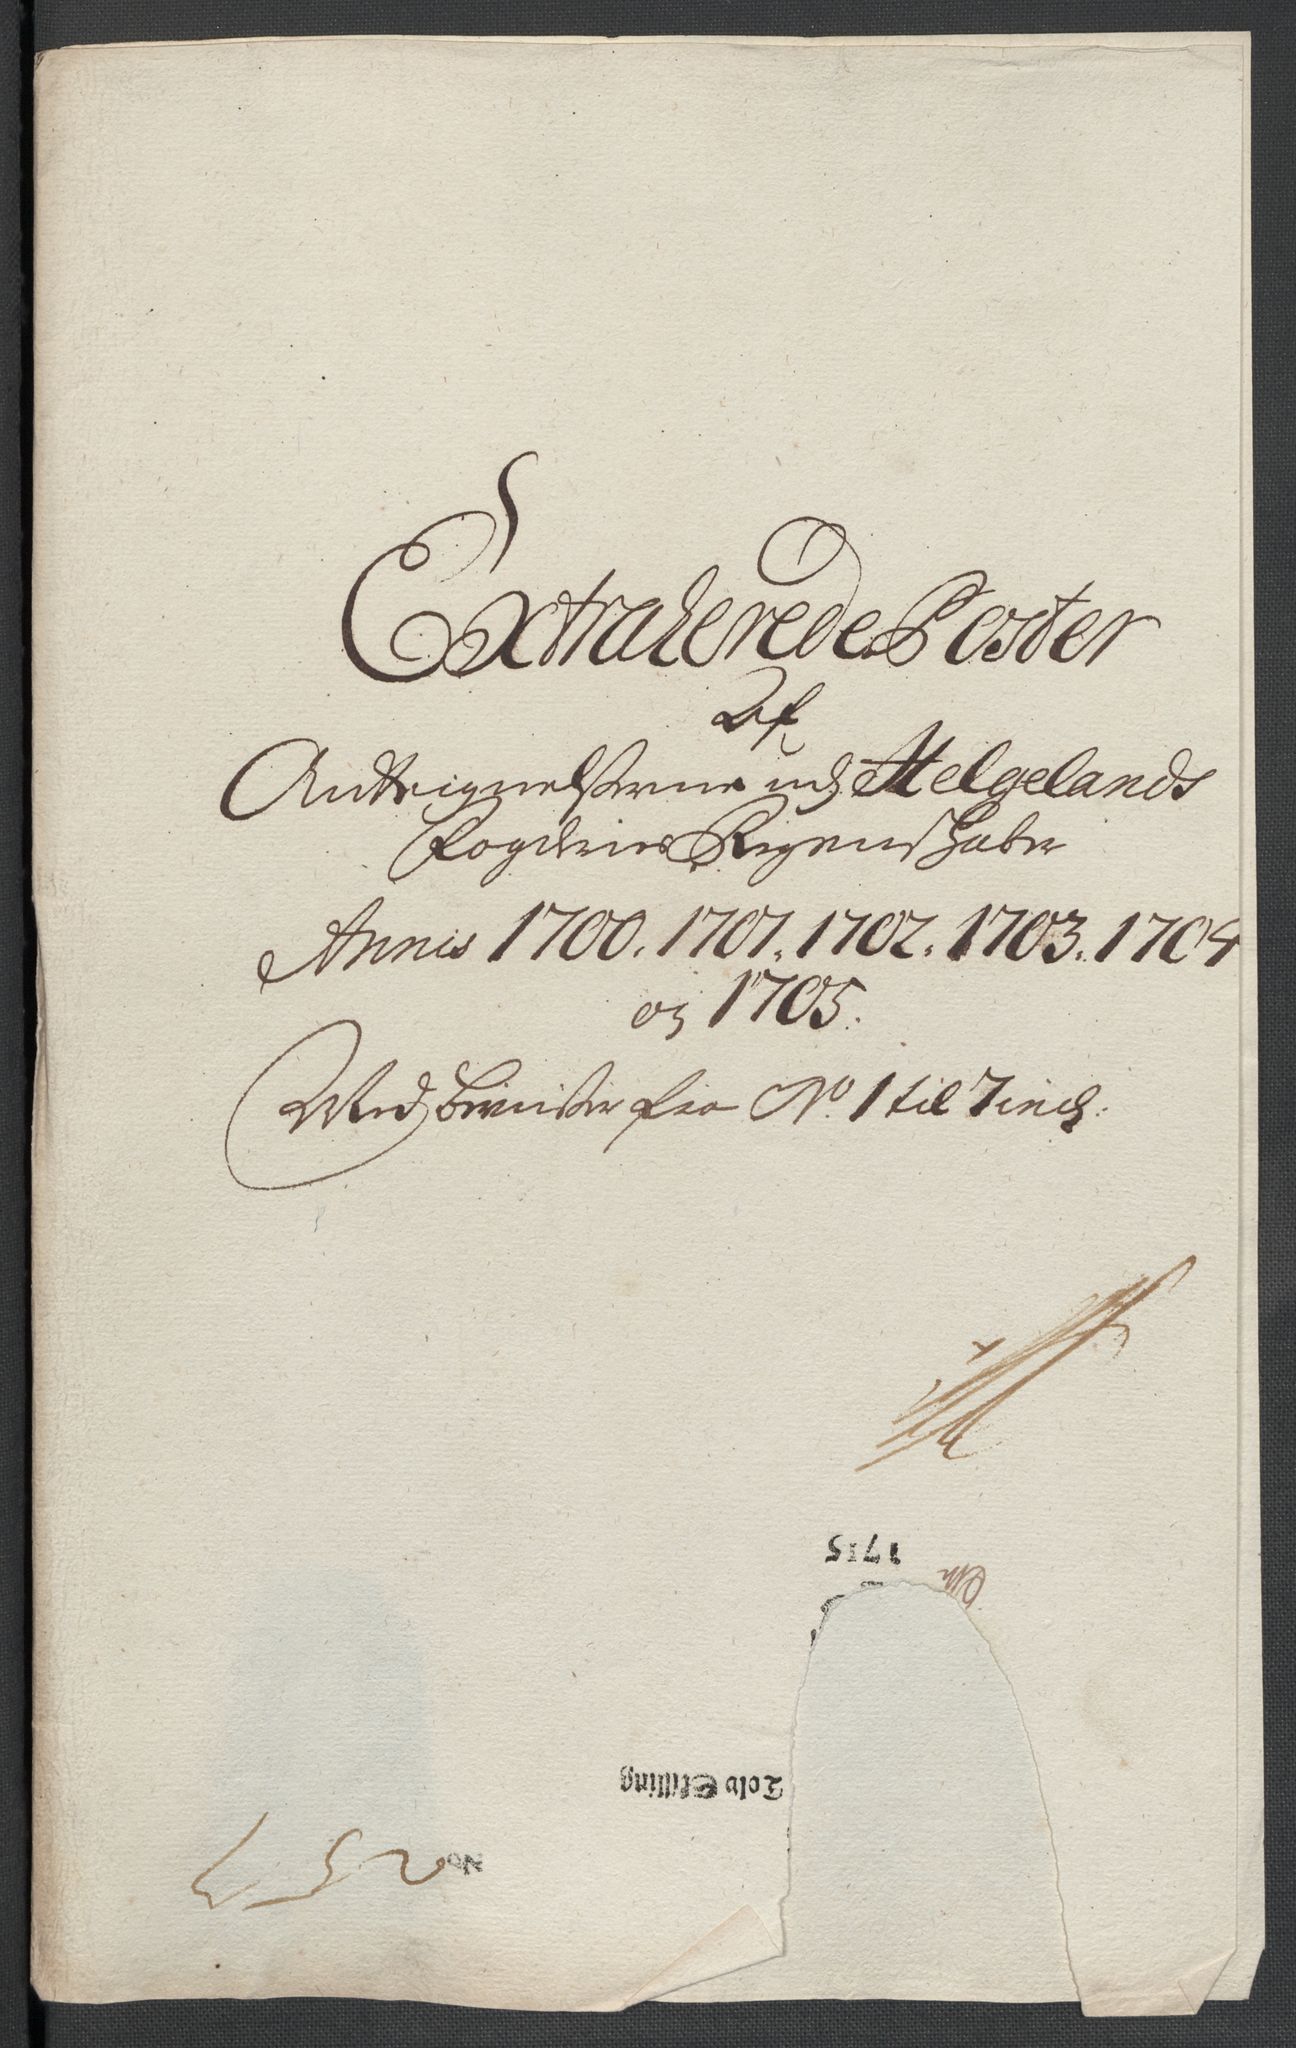 Extraherede Poster
Af
Antteignelserne ved Helgelands
Fogderies Regenskaber
Annis 1700. 1701. 1702. 1703. 1704
og 1705.
Med beviiser fra No. 1 til 7 incl.
1715
Tolv Skilling
No